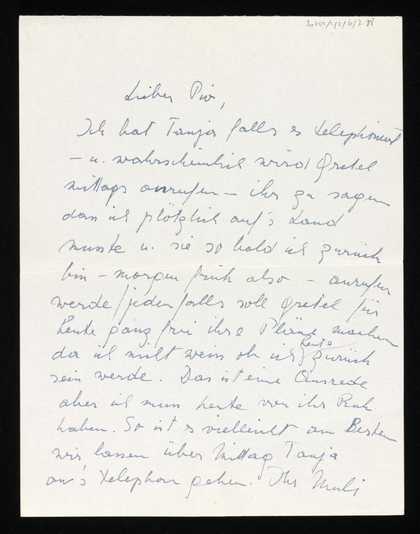 Lieber Pio,
Ich bat Tanja falls es telephoniert
– u. wahrscheinlich wird Gretel
mittags anrufen – ihr zu sagen
dass ich plötzlich auf's Land
musste u. sie so bald ich zurück
bin – morgen früh also – anrufen
werde / jedenfalls soll Gretel für
heute ganz frei ihre Pläne machen
da ich nicht weiss ob ich heute zurück
sein werde. Das ist eine Ausrede
aber ich muss heute vor ihr Ruh
haben. So ist es vielleicht am Besten
wir lassen über Mittag Tanja
an's Telephon gehen. Ihr